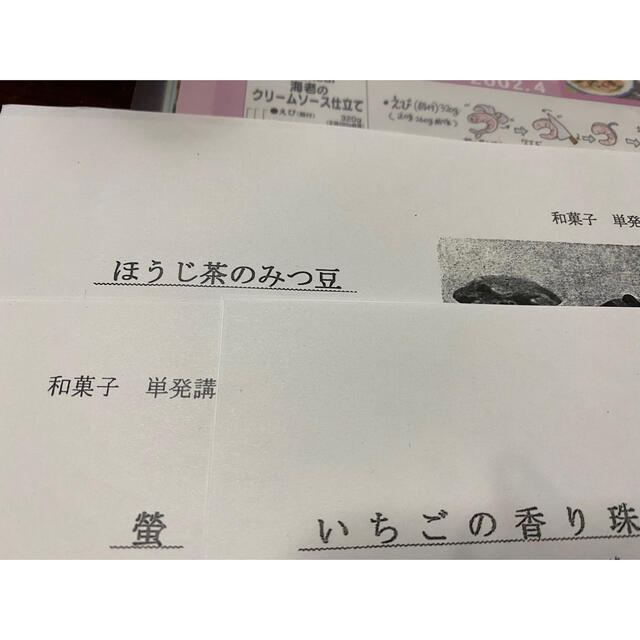 海老の
クリームソース仕立て
●えび(殻付) 320g
2002.4
• えび(殻付)320g
和菓子 単発
ほうじ茶のみつ豆
和菓子 単発講
螢
いちごの香り珠